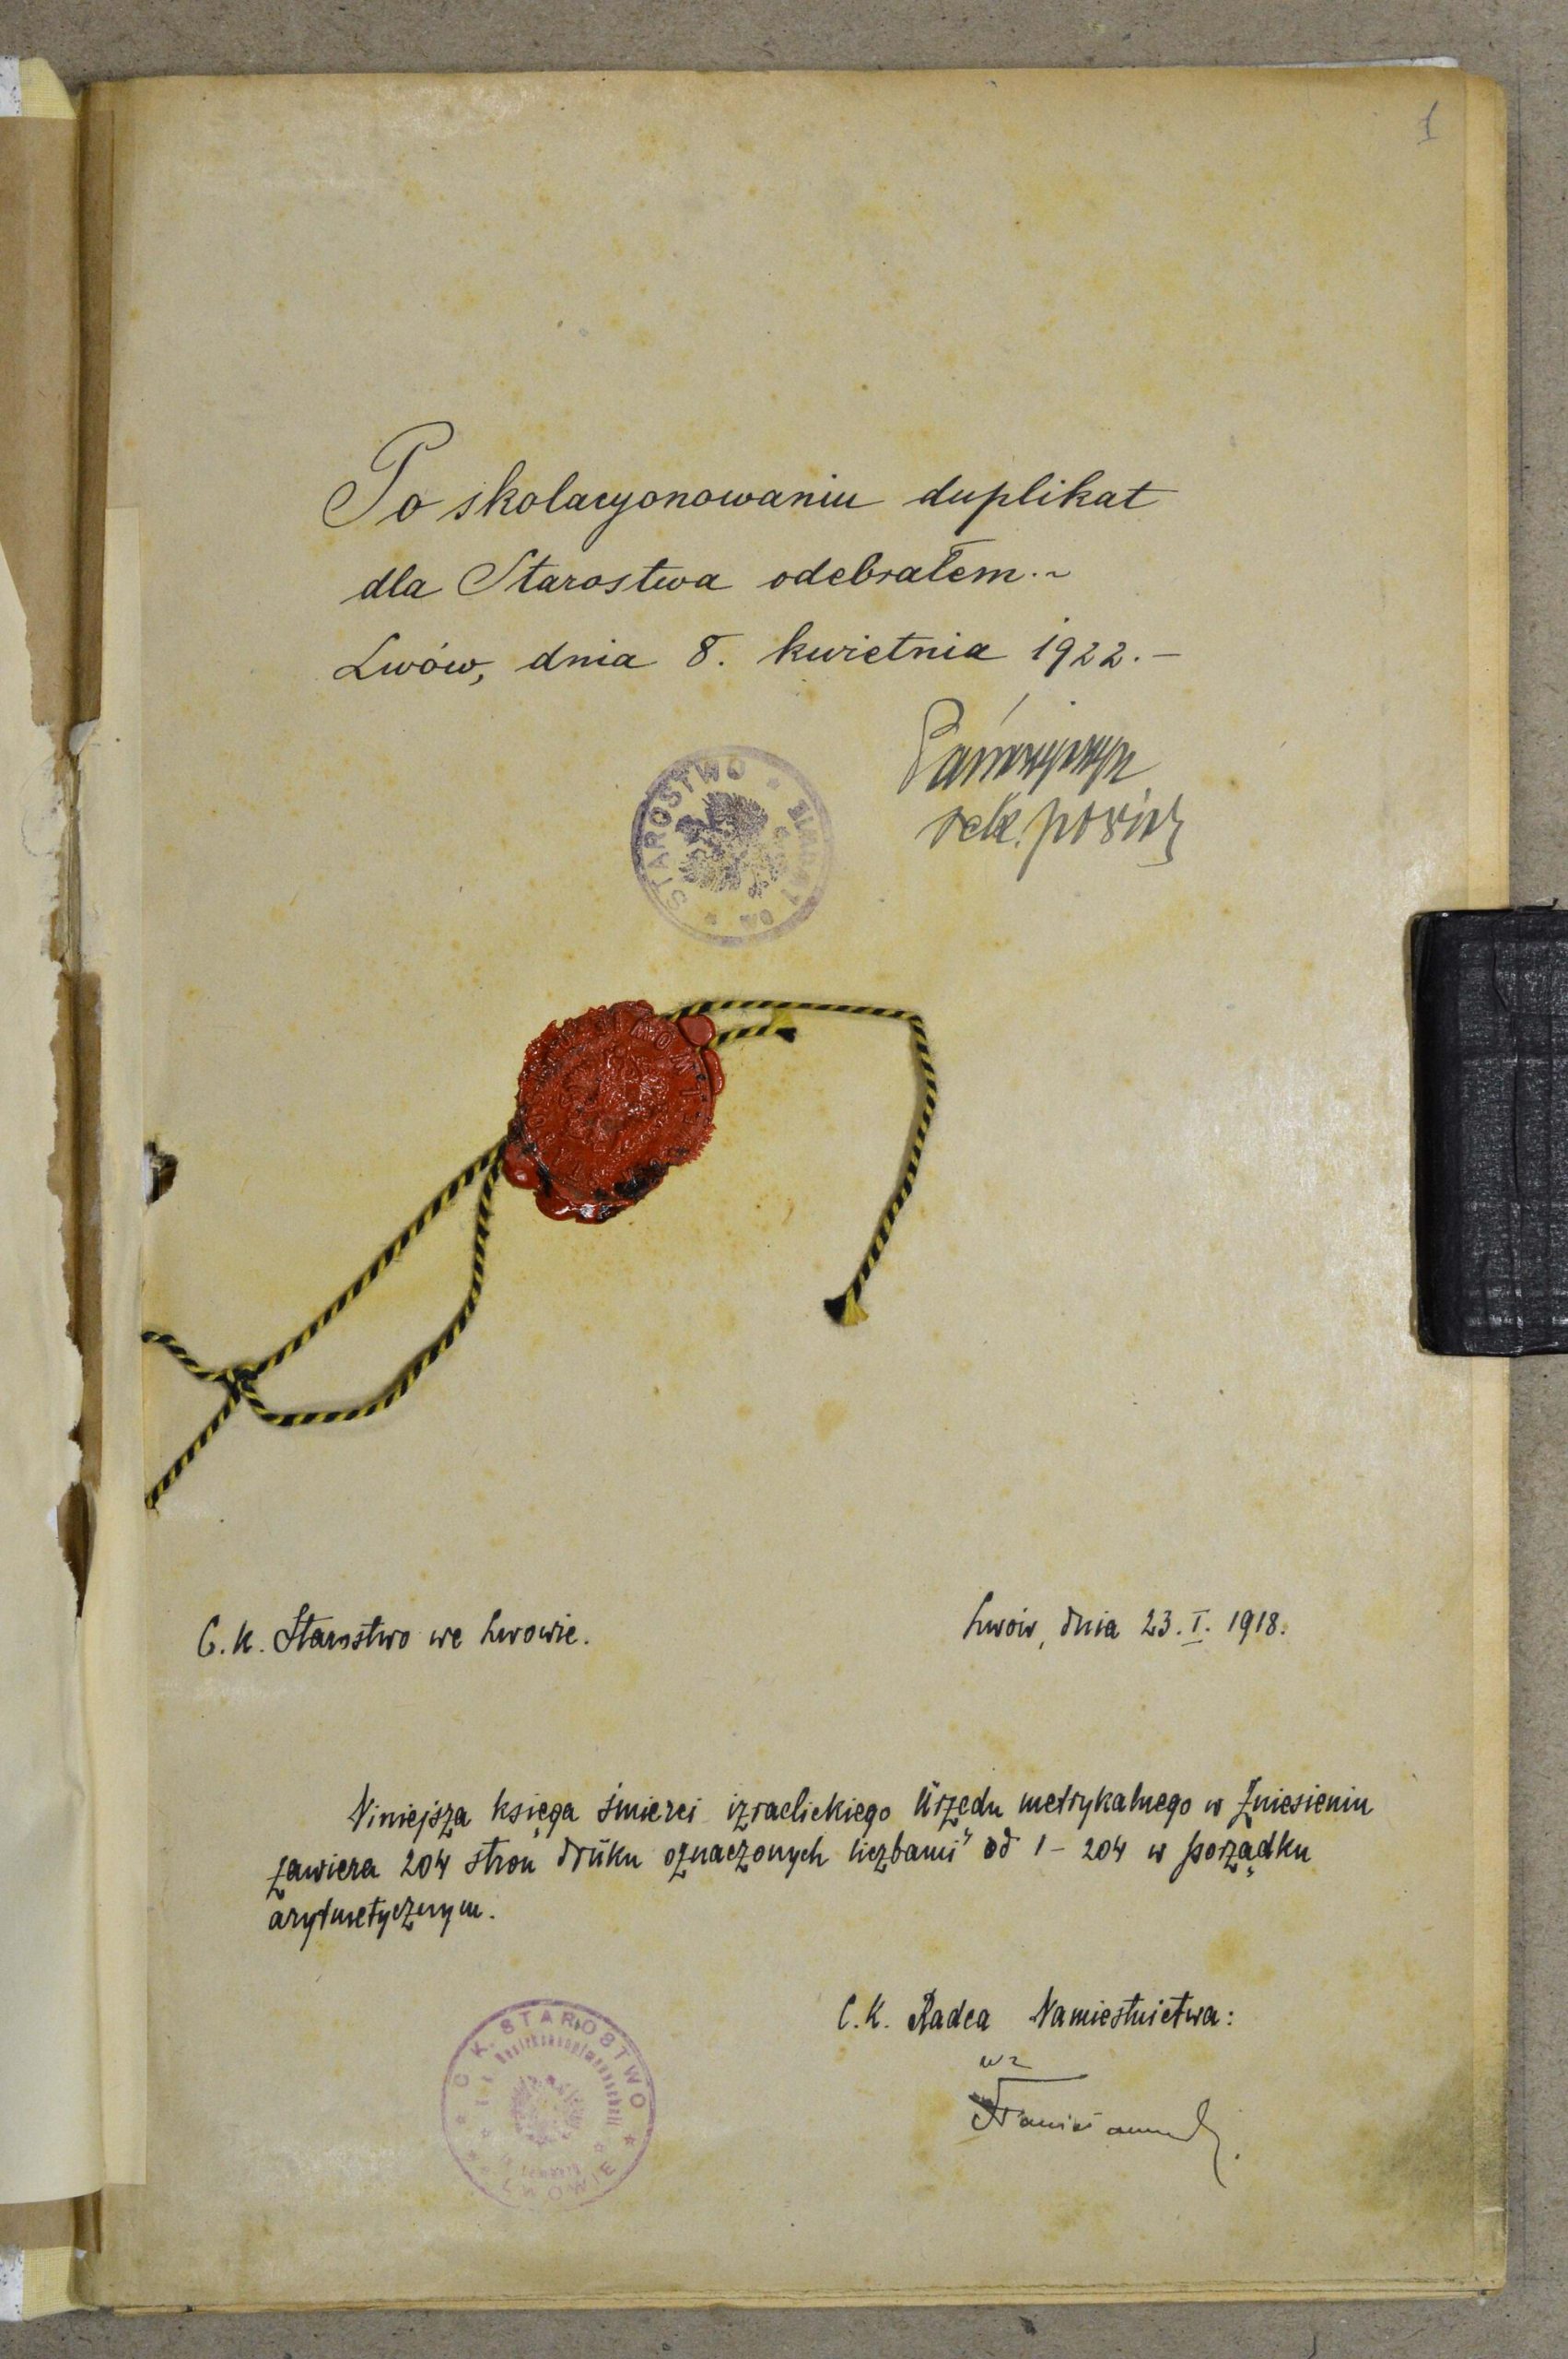 1
Po skolacyonowaniu duplikat
dla Starostwa odebrałem.~
Lwów, dnia 8. kwietnia 1922.—
STAROSTWO
sek. powiat
C. k. Starostwo we Lwowie.
Lwów, dnia 23. I. 1918.
Niniejsza księga śmierci izraelickiego Urzędu metrykalnego w Zniesieniu
zawiera 204 stron druku oznaczonych liczbami od 1 – 204 w porządku
arytmetycznym.
C. K. Radca Namiestnictwa:
wz
C. K. STAROSTWO
LWOWIE